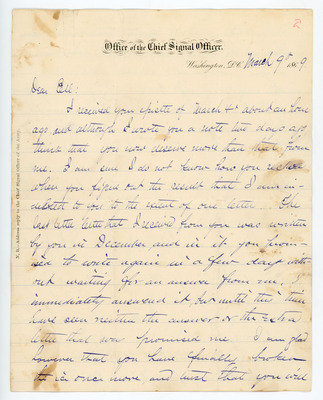 2
Office of the Chief Signal Officer,
Washington, D.C. March 9th 1869
Dear
I received your epistle of March 4th about an hour
ago and although I wrote you a note two days ago
think that you now deserve more than that from
me. I am sure I do not know how you
when you figured out the result that I am in-
debted to you to the extent of one letter. The
last letter that I received from you was written
by you in December and in it you prom-
ised to write again in a few days with-
out waiting for an answer from me, I
immediately answered it but until this time
have seen neither the answer or the extra
letter that you promised me. I am glad
however that you have finally broken
the ice once more and trust that you will
N.B.—Address reply to the Chief Signal Officer of the Army.